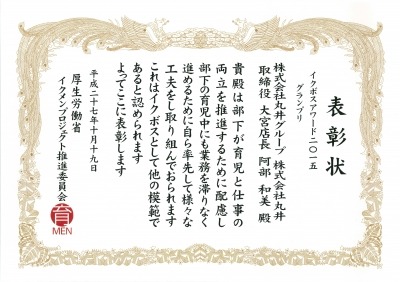 表彰状
イクボスアワード二〇一五
グランプリ
株式会社丸井グループ 株式会社丸井
取締役 大宮店長 阿部 和美 殿
貴殿は部下が育児と仕事の
両立を推進するために配慮し
部下の育児中にも業務を滞りなく
進めるために自ら率先して様々な
工夫をし取り組んでおられます
これはイクボスとして他の模範で
あると認められます
よってここに表彰します
平成二十七年十月十九日
厚生労働省
イクメンプロジェクト推進委員会
育
MEN